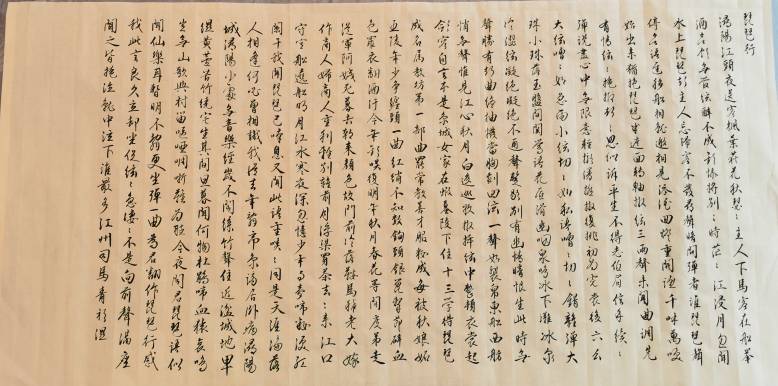 琵琶行
潯陽江頭夜送客楓葉荻花秋瑟〻主人下馬客在船舉
酒欲飲無管絃醉不成歡慘將別〻時茫〻江浸月忽聞
水上琵琶聲主人忘歸客不發尋聲暗問彈者誰琵琶聲
停欲語遲移船相近邀相見添酒回燈重開宴千呼萬喚
始出來猶抱琵琶半遮面轉軸撥絃三兩聲未成曲調先
有情絃〻掩抑聲〻思似訴平生不得志低眉信手續〻
彈說盡心中無限意輕攏慢撚撥復挑初為霓裳後六幺
大絃嘈〻如急雨小絃切〻如私語嘈〻切〻錯雜彈大
珠小珠落玉盤間關鶯語花底滑幽咽泉流冰下灘冰泉
冷澀絃凝絕凝絕不通聲暫歇別有幽愁暗恨生此時無
聲勝有聲曲終抽撥當胸劃四絃一聲如裂帛東船西舫
悄無聲惟見江心秋月白沉吟放撥插絃中整頓衣裳起
斂容自言本是京城女家在蝦蟆陵下住十三學得琵琶
成名屬教坊第一部曲罷常教善才服妝成每被秋娘妬
五陵年少爭纏頭一曲紅綃不知數鈿頭銀篦擊節碎血
色羅裙翻酒污今年歡笑復明年秋月春花等閒度弟走
從軍阿姨死暮去朝來顏色故門前冷落鞍馬稀老大嫁
作商人婦商人重利輕別離前月浮梁買茶去〻來江口
守空船遶船明月江水寒夜深忽憶少年事夢啼妝淚紅
闌干我聞琵琶已嘆息又聞此語重唧〻同是天涯淪落
人相逢何必曾相識我從去年辭帝京謫居臥病潯陽
城潯陽小處無音樂終歲不聞絲竹聲住近湓城地卑
濕黃蘆苦竹繞宅生其間旦暮聞何物杜鵑啼血猿哀鳴
豈無山歌與村笛嘔啞嘲哳難為聽今夜聞君琵琶語似
聞仙樂耳暫明不辭更坐彈一曲為君翻作琵琶行感
我此言良久立却坐促絃〻急凄〻不是向前聲滿座
聞之皆掩泣就中泣下誰最多江州司馬青衫濕